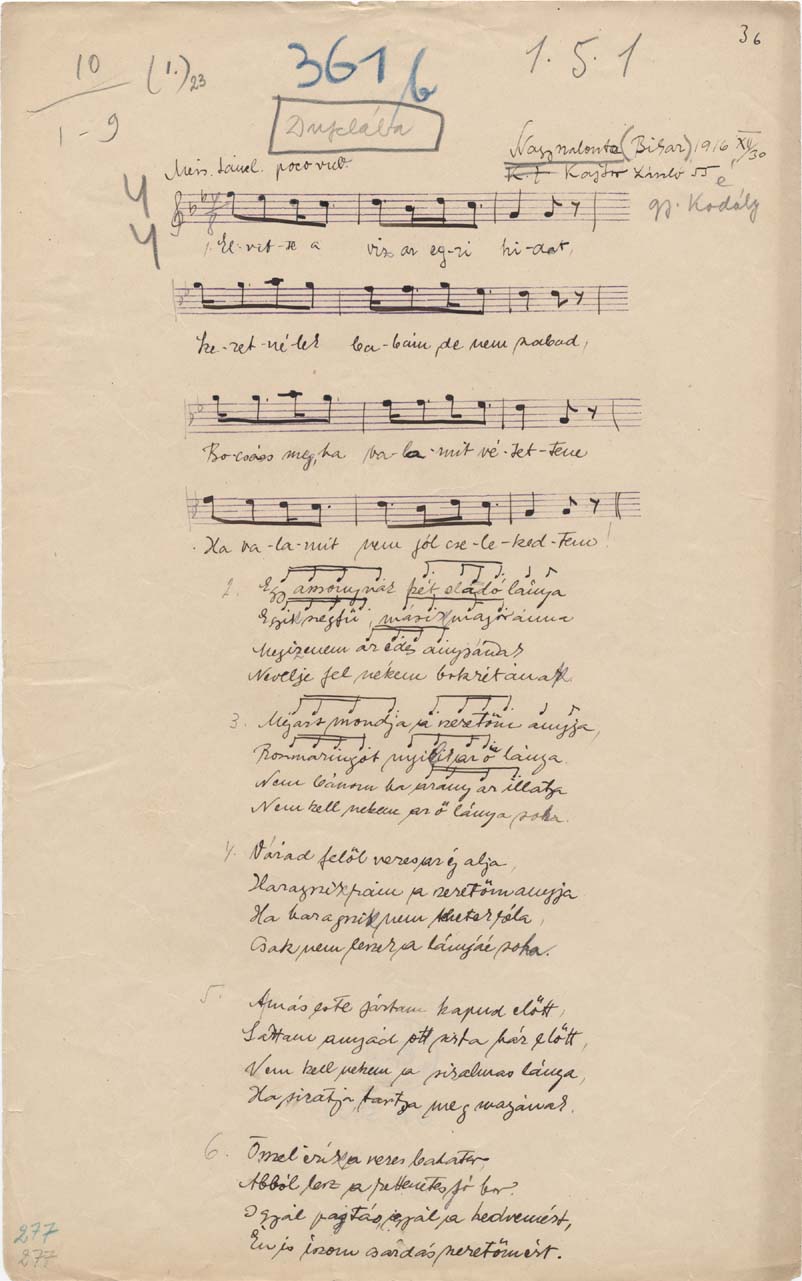 36
10 (1.) 23 361 b 1. 5. 1
1-9
Duplálta
Nagyszalonta (Bihar) 1916 XI/30
Kajtor László 55 é
gy. Kodály
poco rub.
4
4
1. El-vit-te a víz az eg-ri hi-dat,
ke-ret-né-lek ba-bám, de nem szabad,
Bo-csáss meg, ha va-la-mit vé-tet-tem
Ha va-la-mit nem jól cse-le-ked-tem!
2. Egy asszonynak két eladó lánya
Egyik szegfű, másik majoránna
Megizenem az édes anyjának
Nevelje fel nékem bokrétának
3. mondja a szeretőm anyja,
Rozmaringot nyilik az ő lánya.
Nem bánom ha arany az illatja
Nem kell nekem az ő lánya soha.
4. Várad felől veres az ég alja,
Haragszik rám a szeretőm anyja
Ha haragszik, nem tehetek róla,
Csak nem leszek a lányáé soha.
5. A más este jártam kapud előtt,
Láttam anyád ott a ház előtt,
Nem kell nekem a siralmas lánya,
Ha siratja, tartsa meg magának.
6. Ősszel érik a veres badater
Abból lesz a rettenetes jó bor.
Igyál pajtás, igyál a kedvemért,
Én is iszom csárdás szeretőmért.
277
277